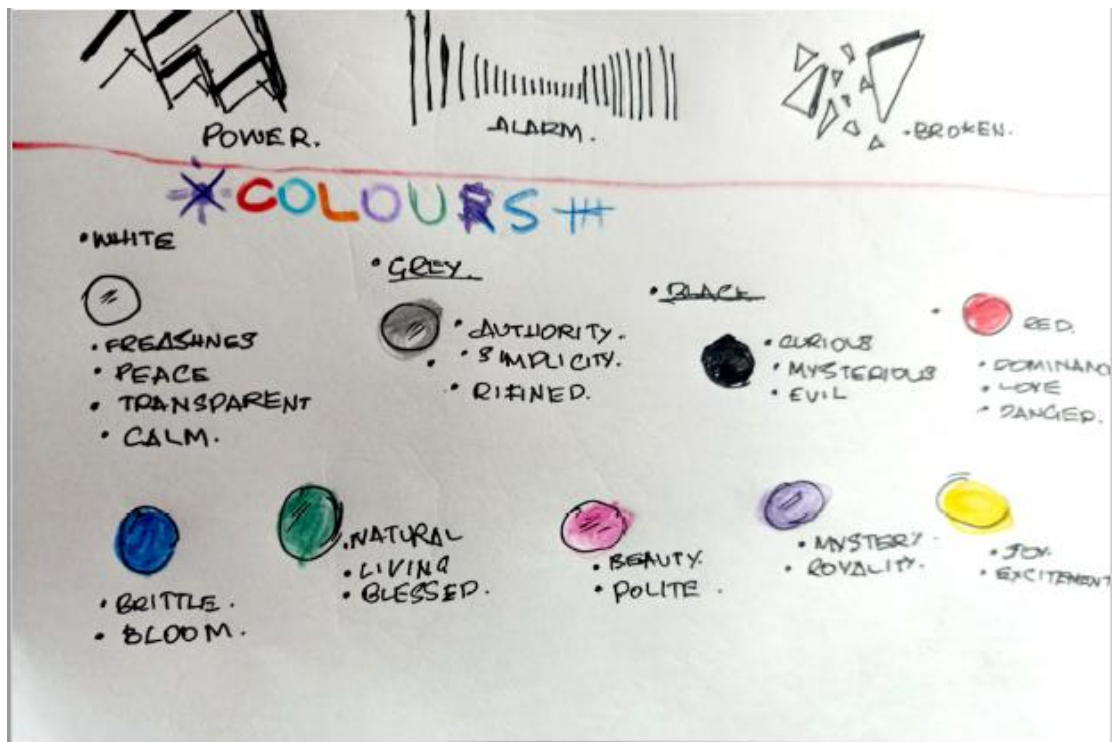 POWER.
ALARM.
• BROKEN.
COLOURS
• WHITE
• FREASHNES
• PEACE
• TRANSPARENT
• CALM.
• GREY.
• AUTHORITY.
• SIMPLICITY.
• RIFINED.
• BLACK
• CURIOUS
• MYSTERIOUS
• EVIL
• RED.
• DOMINANC
• LOVE
• DANGER.
• BRITTLE.
• BLOOM.
• NATURAL
• LIVING
• BLESSED.
• BEAUTY.
• POLITE.
• MYSTERY.
• ROYALITY.
• JOY.
• EXCITEMENT